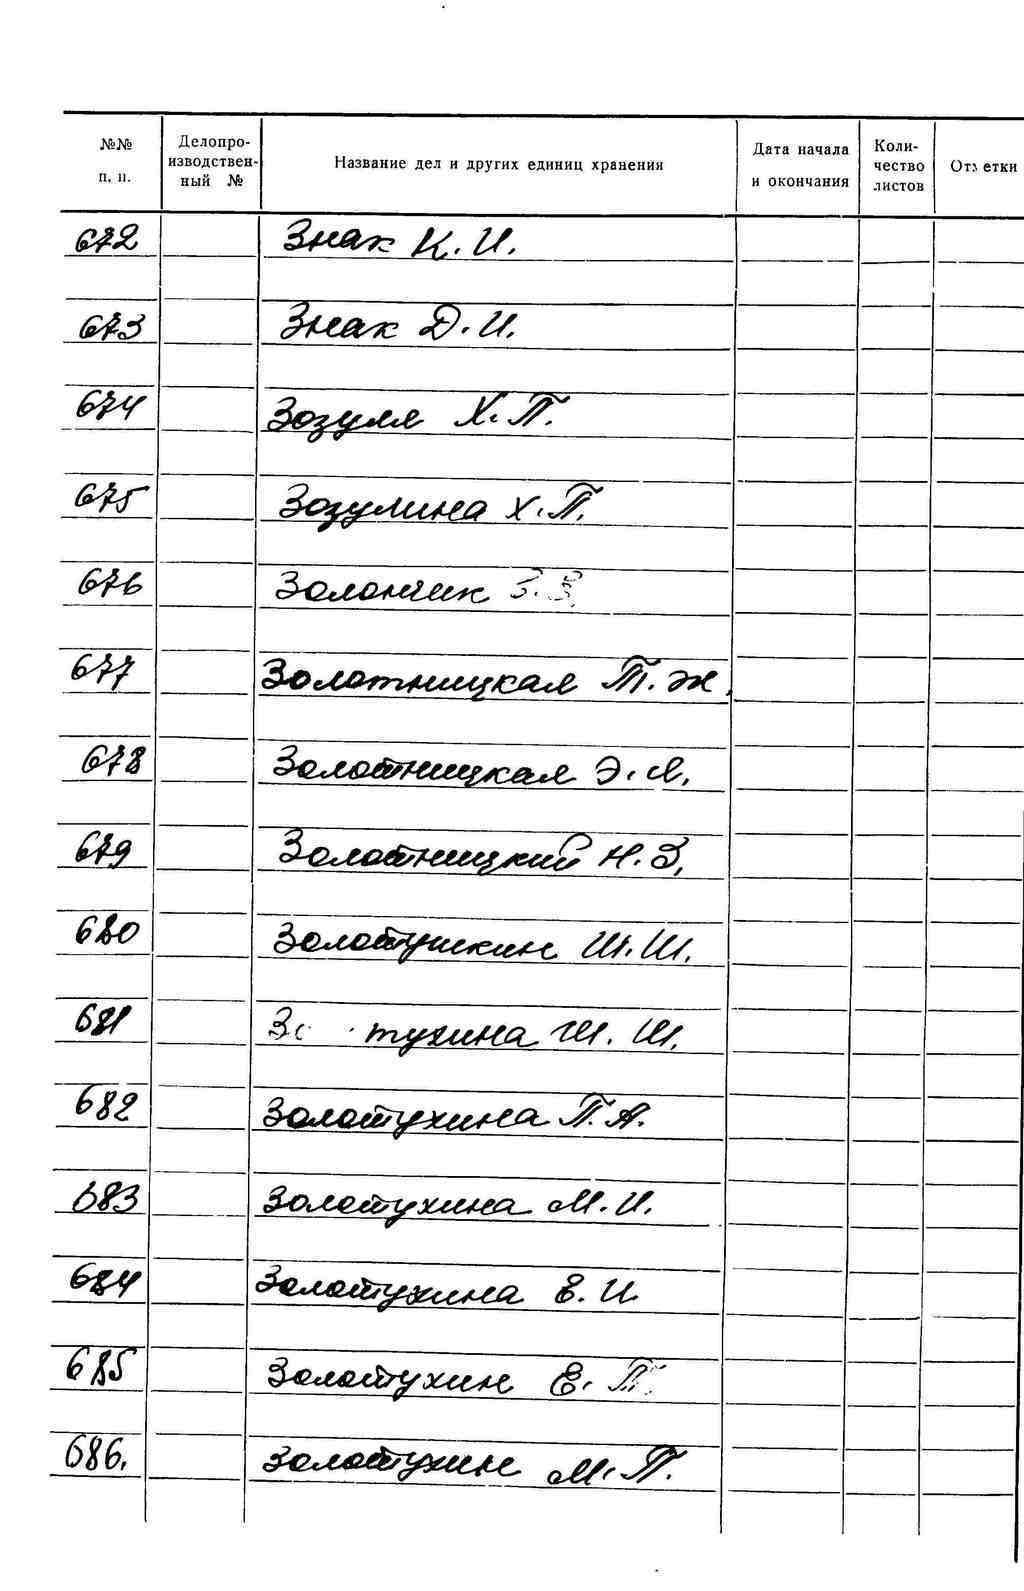 №№ п. п. Делопро- изводствен- ный № Название дел и других единиц хранения Дата начала и окончания Коли- чество листов От етки
672 Знак К. И.
673 Знак Д. И.
674 Зозуля Х. П.
675 Зозулина Х. П.
676 Золончик
677 Золотницкая Т. Ж.
678 Золотницкая Э. Л.
679 Золотницкий Н. З.
680 Золотушкин Ш. Ш.
681 тухина Ш. Ш.
682 Золотухина П. А.
683 Золотухина М. И.
684 Золотухина Е. И.
685 Золотухин Е. П.
686. Золотухин М. П.